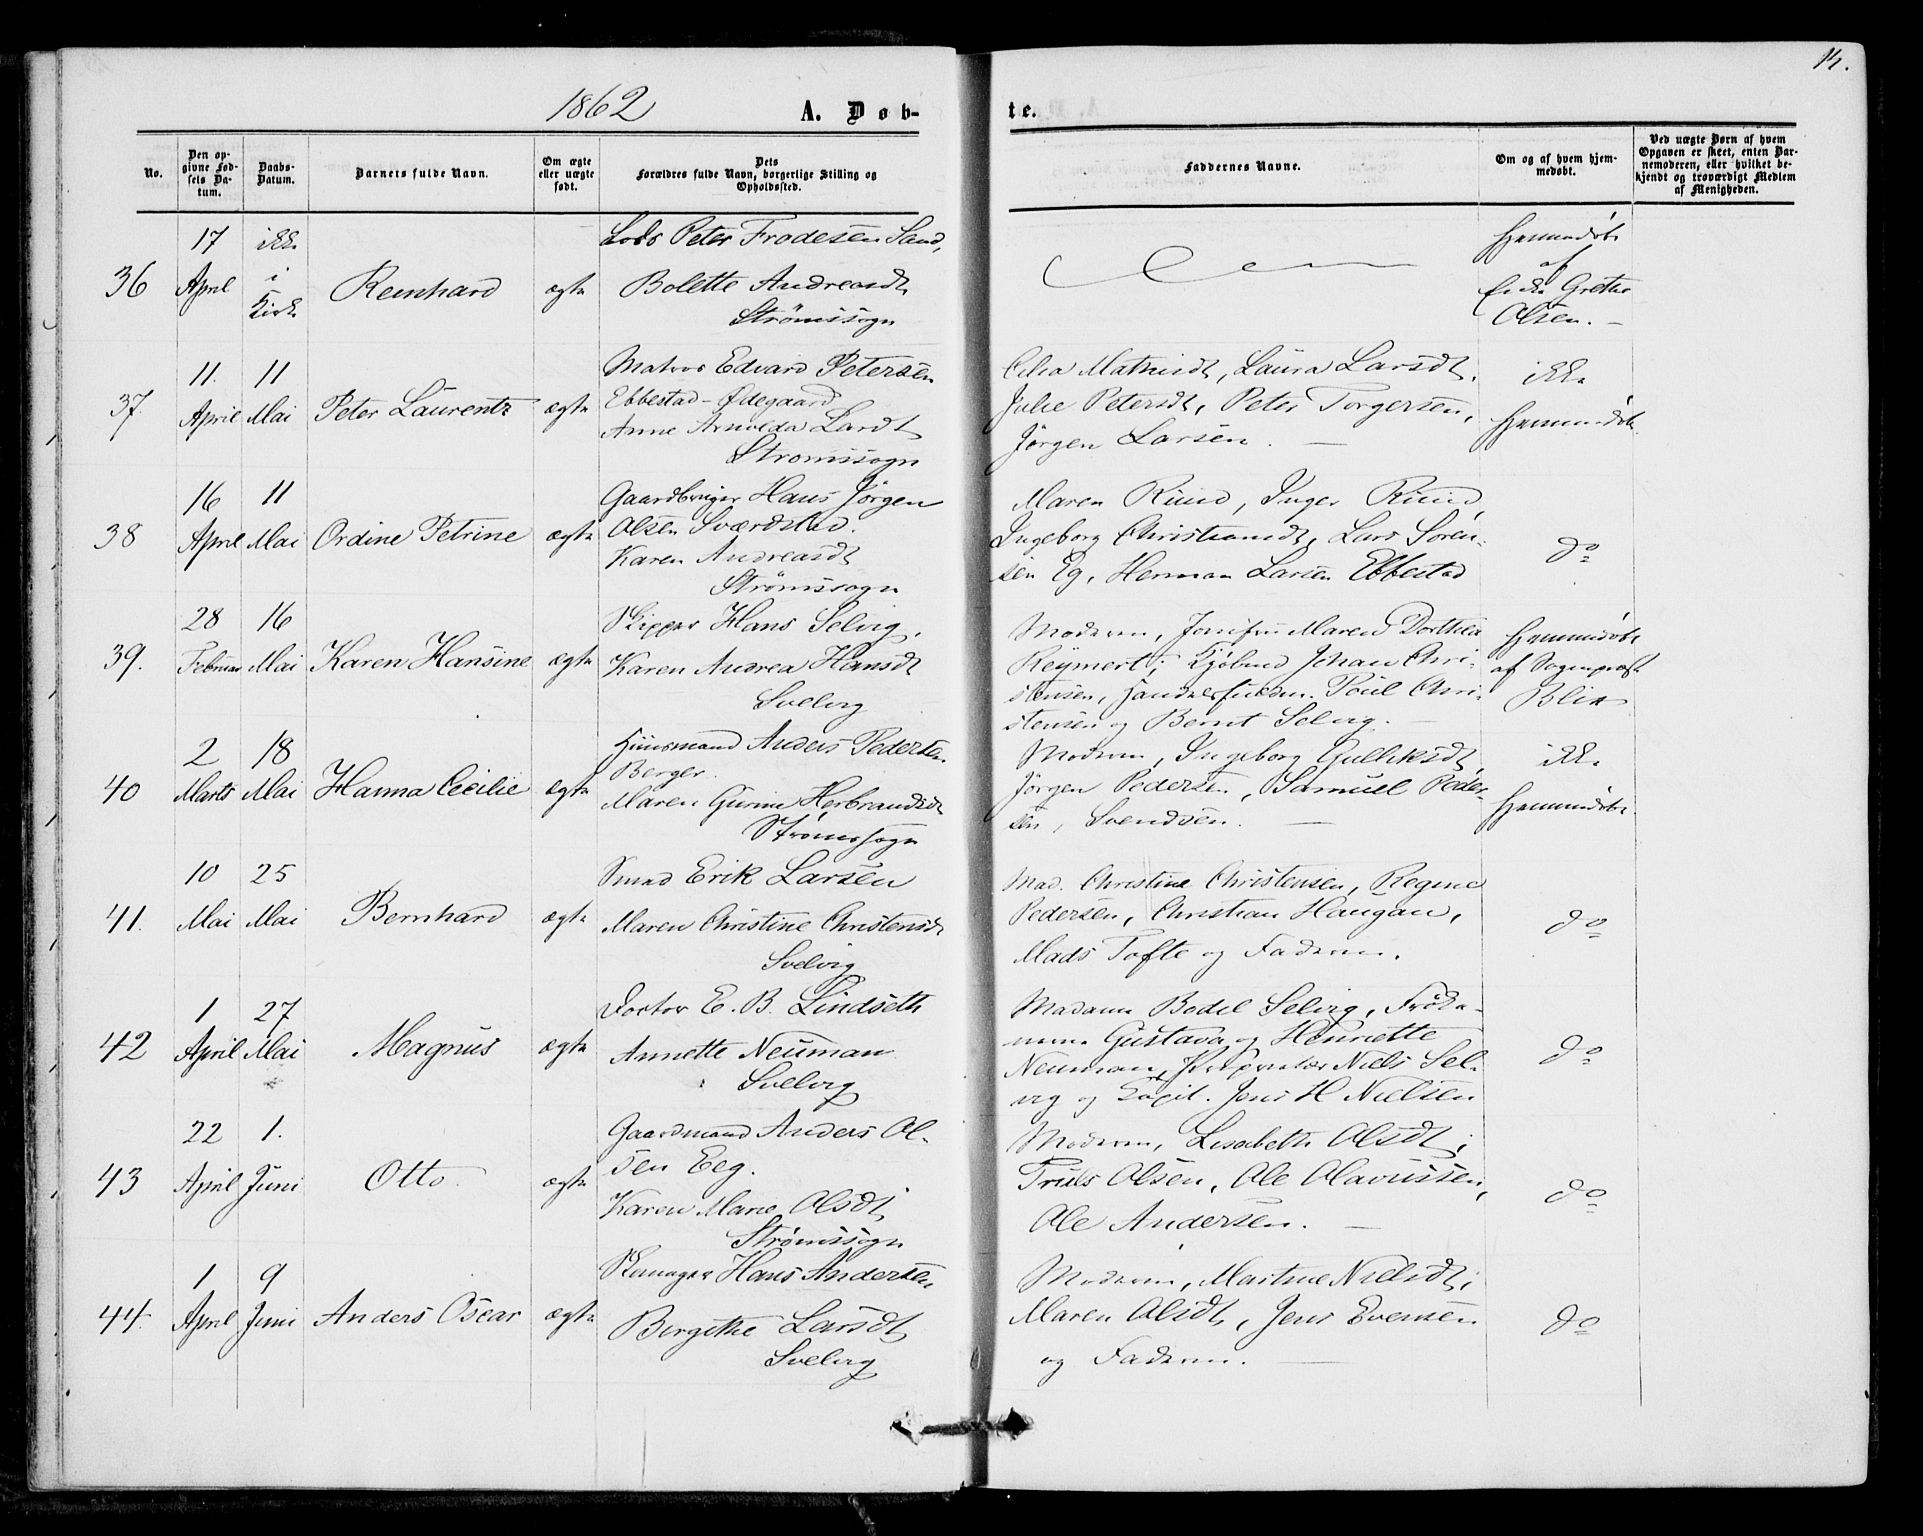 1862
A. Døb-
te.
14.
No.
Den op-
givne Fød-
sels Da-
tum.
Daabs-
Datum.
Barnets fulde Navn.
Om ægte
eller uægte
født.
Dets
Forældres fulde Navn, borgerlige Stilling og
Opholdssted.
Faddernes Navne.
Om og af hvem hjem-
medøbt.
Ved uægte Børn af hvem
Opgaven er skeet, enten Bar-
nemoderen, eller hvilket be-
kjendt og troværdigt Medlem
af Menigheden.
36
17
April
ikke
i
Kirke
Reinhard
ægte
Lods Peter Frodesen Sand,
Bolette Andreasdt
Strømssogn
Hjemmedøbt
af
Grethe
Olsen.
37
11.
April
11
Mai
Peter Laurentz
ægte
Matros Edvard Petersen
Ebbestad-Ødegaard
Anne Arnolda Larsdt
Strømssogn
Mathisdt, Laura Larsdt,
Julie Petersdt, Peter Torgersen,
Jørgen Larsen.
ikke
Hjemmedøbt
38
16
April
11
Mai
Ordine Petrine
ægte
Gaardbruger Hans Jørgen
Olsen Sværdstad.
Karen Andreasdt
Strømssogn
Maren Ruud, Inger Ruud,
Ingeborg Christiansdt, Lars Sören-
sen Eg, Herman Larsen Ebbestad
do
39.
28
Februar
16
Mai
Karen Hansine
ægte
Skipper Hans Selvig,
Karen Andrea Hansdt
Svelvig
Moderen, Jomfru Maren Dorthea
Reymert; Kjøbmd Johan Chri-
stensen, Poul Chri-
stensen og Bernt Selvig.
Hjemmedøbt
af Sogneprest
Blix
40
2
Marts
18
Mai
Hanna Cecilie
ægte
Huusmand Anders Pedersen
Berger.
Maren Gurine Herbrandsdt
Strømssogn
Moderen, Ingeborg Gulliksdt,
Jörgen Pedersen, Samuel Peder-
sen, Svendsen.
ikke
Hjemmedøbt
41.
10
Mai
25
Mai
Bernhard
ægte
Smed Erik Larsen
Maren Christine Christensdt
Svelvig
Mad. Christine Christensen, Regine
Pedersen, Christian Haugan,
Mads Tofte og Faderen.
do
42
1
April
27
Mai
Magnus
ægte
Doctor E. B. Lindseth
Annette Neuman
Svelvig
Madame Bodel Selvig, Frøke-
nerne Gustava og Henriette
Neuman, Proprietær Niels Sel-
vig og Capit. Jens H Nielsen
do
43
22
April
1.
Juni
Otto
ægte
Gaardmand Anders Ol-
sen Eeg.
Karen Marie Olsdt
Strømssogn
Moderen, Lisabeth Olsdt;
Truls Olsen, Ole Olavussen,
Ole Andersen.
do
44.
1
April
9
Juni
Anders Oscar
ægte
Skomager Hans Andersen,
Birgithe Larsdt
Svelvig
Moderen, Martine Nielsdt,
Maren Olsdt, Jens Evensen
og Faderen.
do